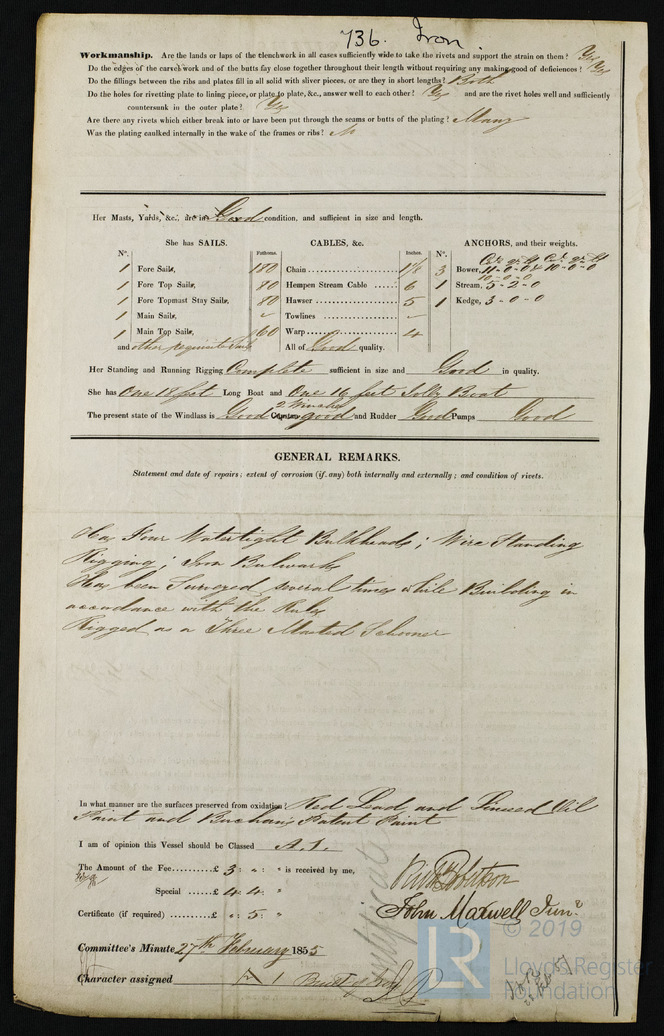 736. Iron
Workmanship. Are the lands or laps of the clenchwork in all cases sufficiently wide to take the rivets and support the strain on them? Yes
Do the edges of the carvel work and of the butts fay close together throughout their length without requiring any making good of deficiences? Yes
Do the fillings between the ribs and plates fill in all solid with sliver pieces, or are they in short lengths? Both
Do the holes for rivetting plate to lining piece, or plate to plate, &c., answer well to each other? Yes and are the rivet holes well and sufficiently
countersunk in the outer plate? Yes
Are there any rivets which either break into or have been put through the seams or butts of the plating? Many
Was the plating caulked internally in the wake of the frames or ribs?
Her Masts, Yards, &c. are in Good condition, and sufficient in size and length.
She has SAILS. CABLES, &c. ANCHORS, and their weights.
N°. Fathoms. Inches. N°.
1 Fore Sails, 180 Chain 3 Bower, 11-0-0 10-0-0
10-0-0
1 Fore Top Sails, 80 Hempen Stream Cable 6 1 Stream, 5-2-0
1 Fore Topmast Stay Sails, 80 Hawser 5 1 Kedge, 3-0-0
1 Main Sails, Towlines
1 Main Top Sails, 60 Warp 4
and other requisite Sails All of Good quality.
Her Standing and Running Rigging Complete sufficient in size and Good in quality.
She has One 18 feet Long Boat and One 16 feet Jolly Boat
The present state of the Windlass is Good Capstan 2 Winches good and Rudder Good Pumps Good
GENERAL REMARKS.
Statement and date of repairs; extent of corrosion (if any) both internally and externally; and condition of rivets.
Has Four Watertight Bulkheads; Wire Standing
Rigging; Iron Bulwarks
Has been Surveyed several times while Building in
accordance with the Rules
Rigged as a Three Masted Schooner
In what manner are the surfaces preserved from oxidation? Red Lead and Linseed Oil
Paint and Buchan's Patent Paint
I am of opinion this Vessel should be Classed A.1.
The Amount of the Fee......£ 3: „: „ is received by me,
Special ......£ 4: 4: „
Certificate (if required) .........£ „: 5: „
John Maxwell Junr
Committee's Minute 27th February 1855
Character assigned A 1 Built of Iron
Certificate
LR
© 2019
Lloyd's Register
Foundation